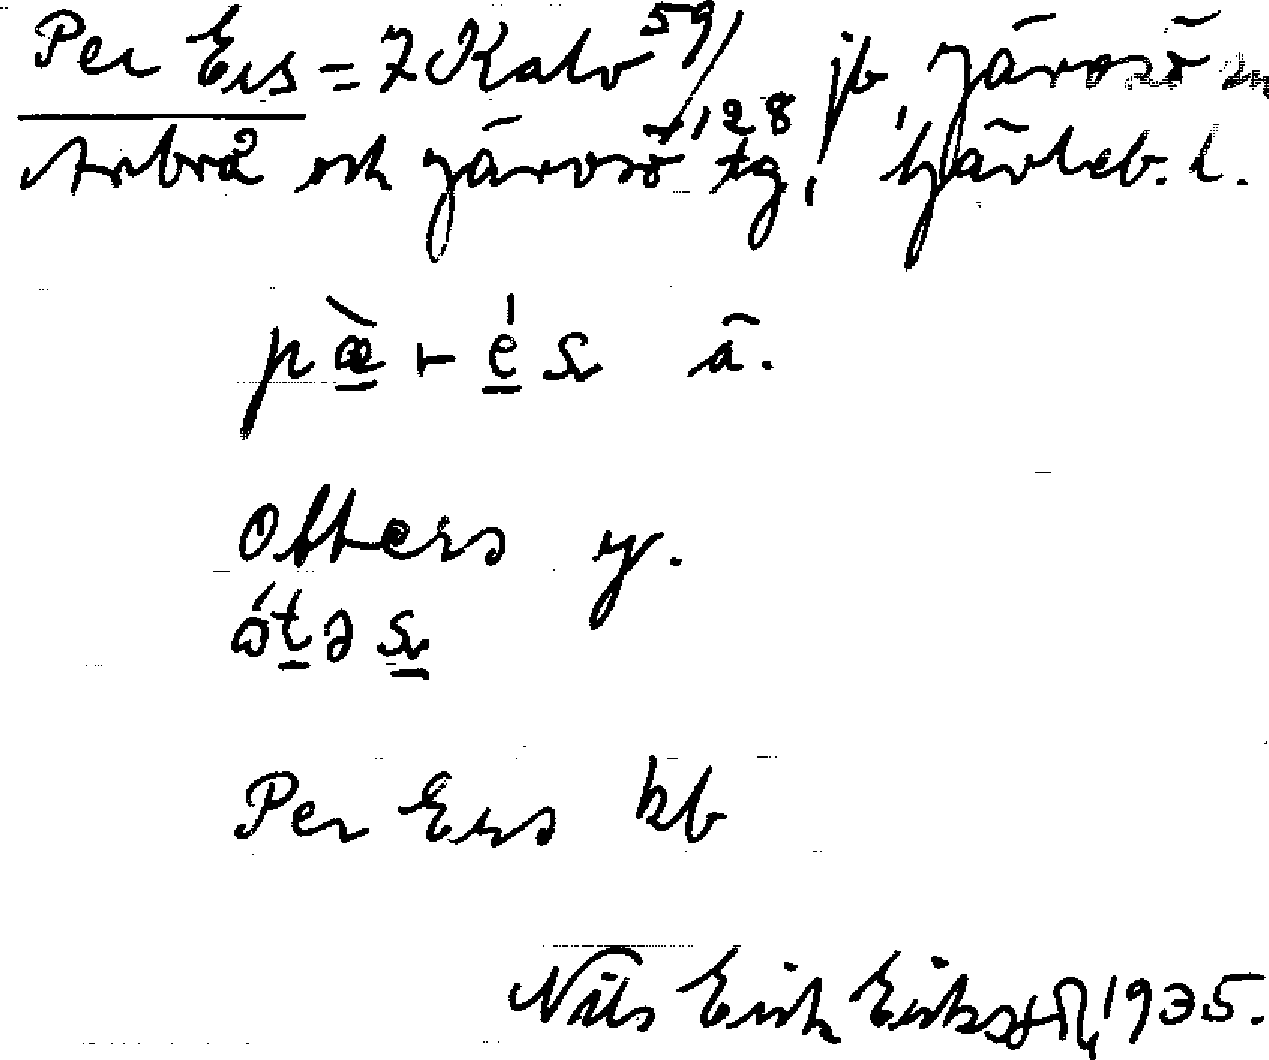 Per Ers = 7 Kalv 59/128 jb, Järvsö sn
Arbrå och Järvsö tg, Gävleb. l.
pæ̀r és â.
Olters y.
ót̠əs̠
Per Ers kb
Nils Erik Eriksson, 1935.